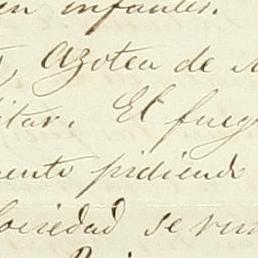 en infantes.
Azotea de
itar. El fueg
ento pidiendo
Sociedad se reu